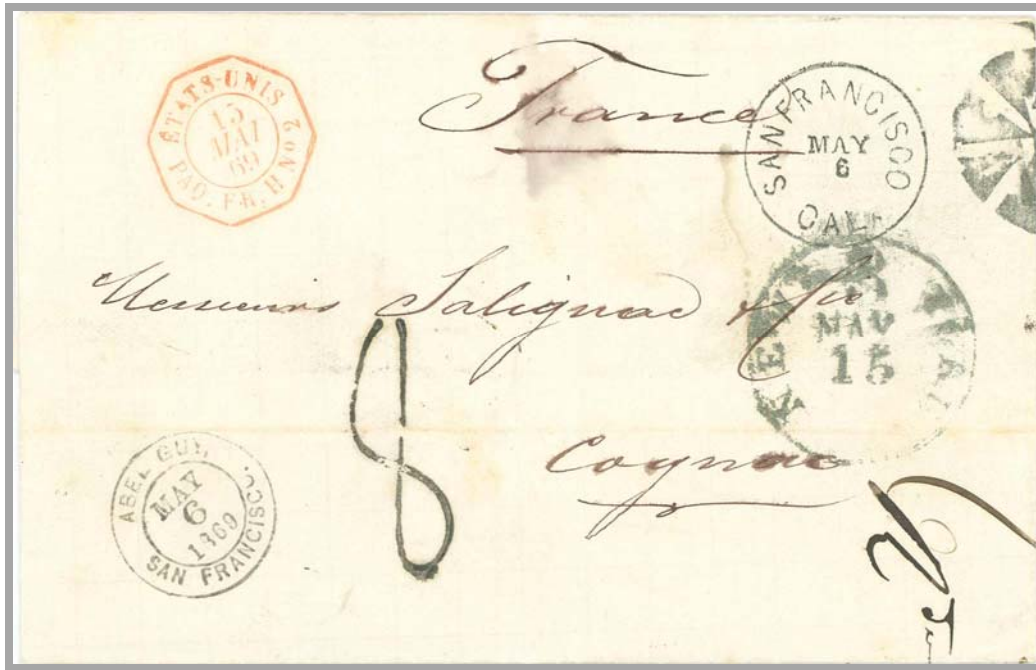 ÉTATS-UNIS
PAQ. FR. H No 2
15
MAI
69
France
SAN FRANCISCO
MAY
6
CAL
Messieurs Salignac & Cie
NEW YORK
MAY
15
8
Cognac
ABEL GUY,
MAY
6
1869
SAN FRANCISCO